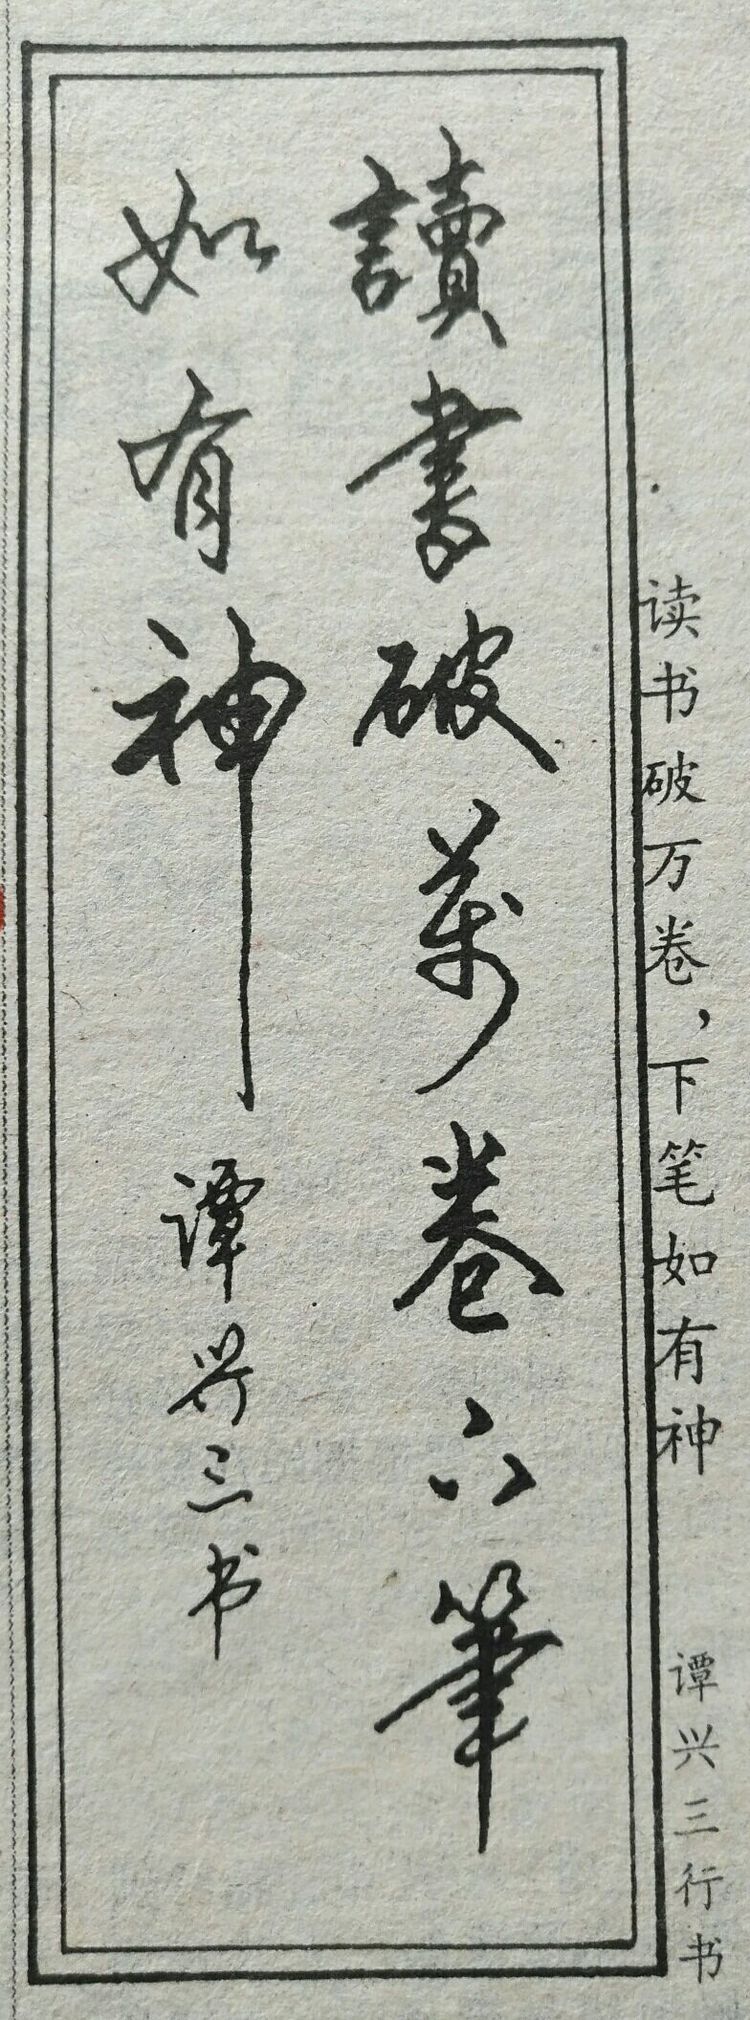 读书破万卷，下笔如有神
谭兴三行书
讀書破萬卷下筆
如有神
谭兴三书